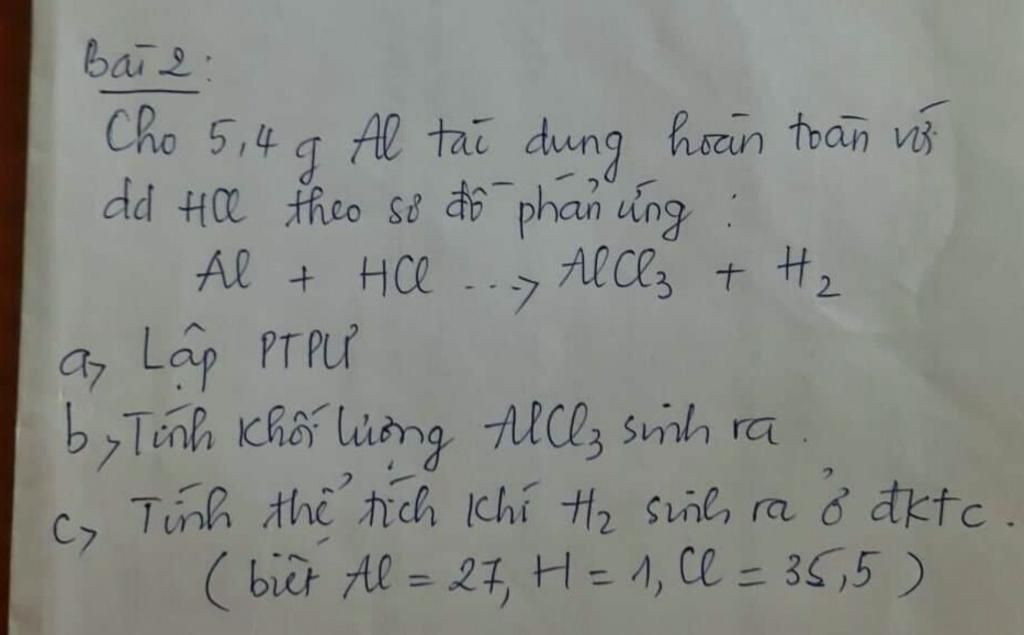 Bài 2:
Cho 5,4 g Al tác dụng hoàn toàn với
dd HCl theo sơ đồ phản ứng :
Al + HCl ...> AlCl₃ + H₂
a, Lập PTPƯ
b, Tính khối lượng AlCl₃ sinh ra.
c, Tính thể tích khí H₂ sinh ra ở đktc.
(biết Al = 27, H = 1, Cl = 35,5)